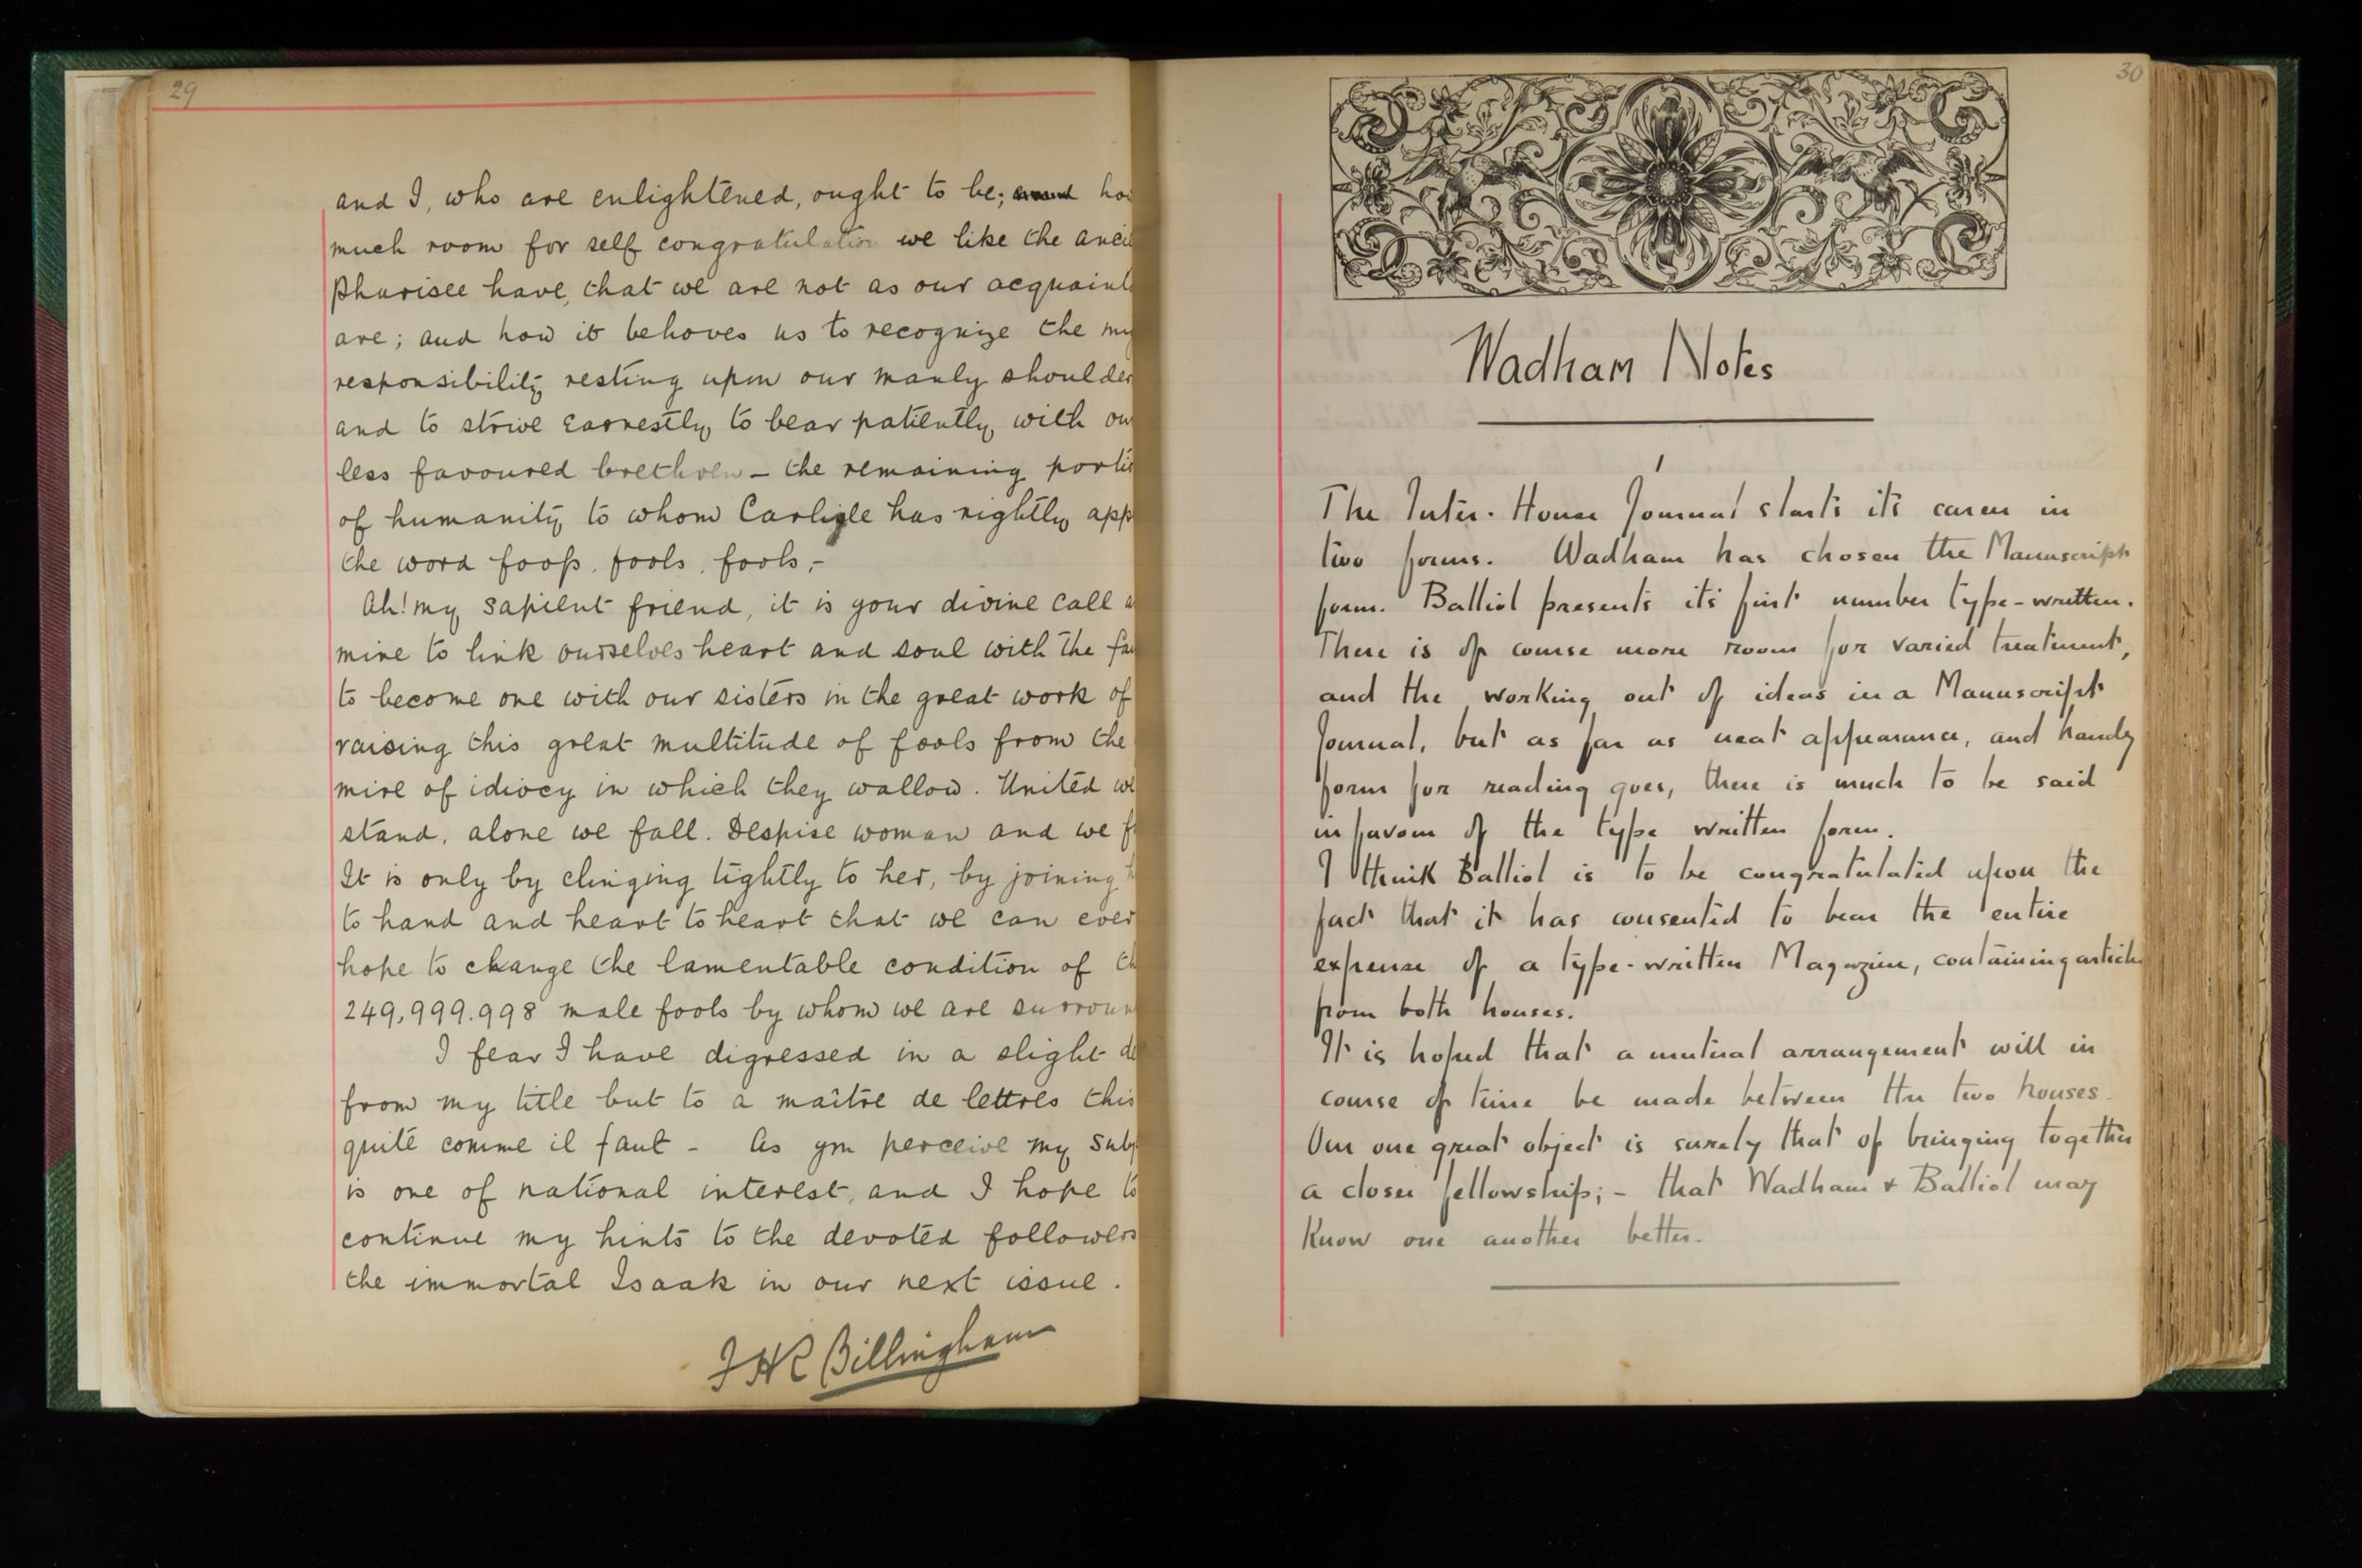 29
and I, who are enlightened, ought to be; how
much room for self congratulation we like the anci
Pharisee have, that we are not as our acquaint
are; and how it behoves us to recognize the my
responsibility resting upon our manly shoulder
and to strive earnestly to bear patiently with ou
less favoured brethren – the remaining porti
of humanity to whom Carligle has rightly app
the word fools, fools, fools,–
Ah! my sapient friend, it is your divine call a
mine to link ourselves heart and soul with the fa
to become one with our sisters in the great work of
raising this great multitude of fools from the
mire of idiocy in which they wallow. United we
stand, alone we fall. Despise woman and we f
It is only by clinging tightly to her, by joining h
to hand and heart to heart that we can ever
hope to change the lamentable condition of th
249,999.998 male fools by whom we are surroun
I fear I have digressed in a slight de
from my title but to a maître de lettres this
quite comme il faut – As you perceive my subj
is one of national interest, and I hope to
continue my hints to the devoted followers
the immortal Isaak in our next issue.
J H C Billingham
30
Wadham Notes
The Inter-House Journal starts its career in
two forms. Wadham has chosen the Manuscript
form. Balliol presents its first number type-written.
There is of course more room for varied treatment,
and the working out of ideas in a Manuscript
Journal, but as far as neat appearance, and handy
form for reading goes, there is much to be said
in favour of the type written form.
I think Balliol is to be congratulated upon the
fact that it has consented to bear the entire
expense of a type-written Magazine, containing article
from both houses.
It is hoped that a mutual arrangement will in
course of time be made between the two houses.
Our one great object is surely that of bringing together
a closer fellowship; – that Wadham & Balliol may
know one another better.